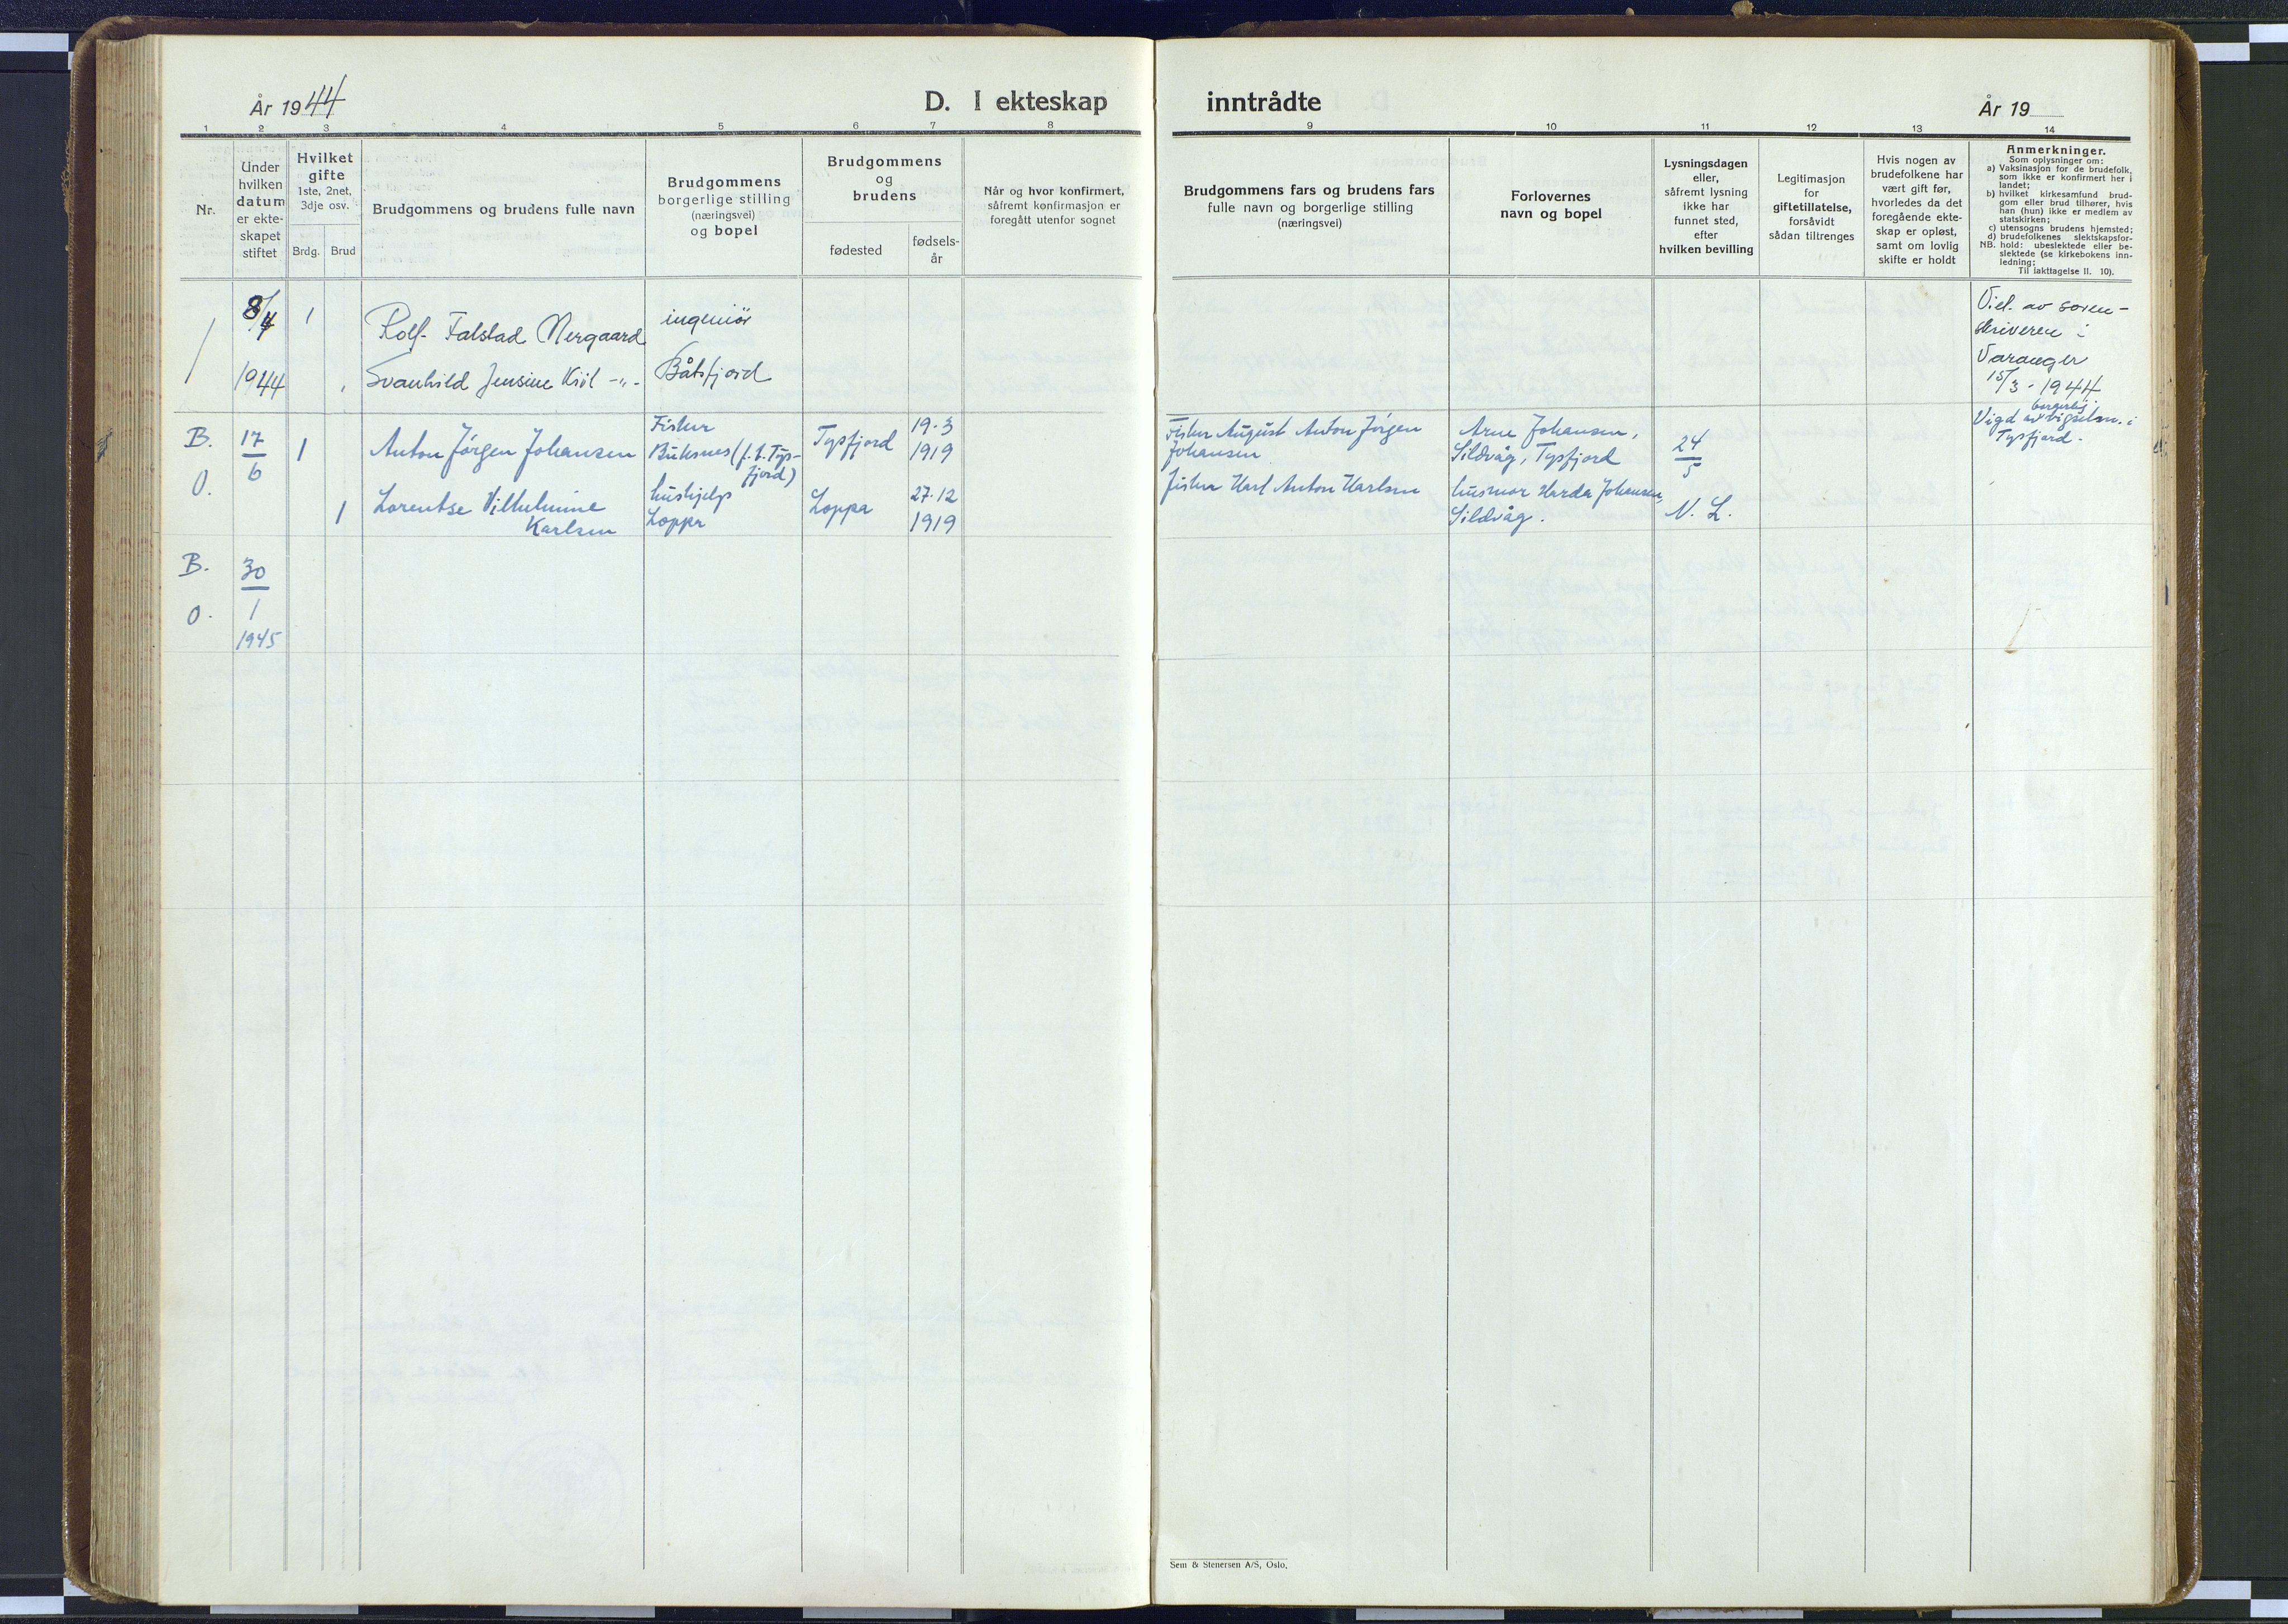 År 1944
D. I ekteskap
inntrådte
År 19
1 2 3 4 5 6 7 8
9 10 11 12 13 14
Nr.
Under
hvilken
datum
er ekte-
skapet
stiftet
Hvilket
gifte
1ste, 2net,
3dje osv.
Brdg. Brud
Brudgommens og brudens fulle navn
Brudgommens
borgerlige stilling
(næringsvei)
og bopel
Brudgommens
og
brudens
fødested
fødsels-
år
Når og hvor konfirmert,
såfremt konfirmasjon er
foregått utenfor sognet
Brudgommens fars og brudens fars
fulle navn og borgerlige stilling
(næringsvei)
Forlovernes
navn og bopel
Lysningsdagen
eller,
såfremt lysning
ikke har
funnet sted,
efter
hvilken bevilling
Legitimasjon
for
giftetillatelse,
forsåvidt
sådan tiltrenges
Hvis nogen av
brudefolkene har
vært gift før,
hvorledes da det
foregående ekte-
skap er opløst,
samt om lovlig
skifte er holdt
Anmerkninger.
Som oplysninger om:
a) Vaksinasjon for de brudefolk,
som ikke er konfirmert her i
landet;
b) hvilket kirkesamfund brud-
gom eller brud tilhører, hvis
han (hun) ikke er medlem av
statskirken;
c) utensogns brudens hjemsted;
d) brudefolkenes slektskapsfor-
NB. hold: ubeslektede eller be-
slektede (se kirkebokens inn-
ledning;
Til iakttagelse II. 10).
1
8/4
1944
1
Rolf Falstad Nergaard
Svanhild Jensine Kiil -"-
ingeniør
Båtsfjord
Viel. av soren-
skriveren i
Varanger
15/3 - 1944
B.
O.
17
6
1
1
Anton Jørgen Johansen
Lorentse Vilhelmine
Karlsen
Fisker
Buksnes (f. t. Tys-
fjord)
hushjelp
Loppa
Tysfjord
Loppa
19.3
1919
27.12
1919
Fisker August Anton Jørgen
Johansen
fisker Karl Anton Karlsen
Arne Johansen,
Sildvåg, Tysfjord
husmor Harda Johansen,
Sildvåg.
24
5
N. L.
borgerlig
Vigd av vigselsm. i
Tysfjord.
B.
O.
30
1
1945
Sem & Stenersen A/S, Oslo.